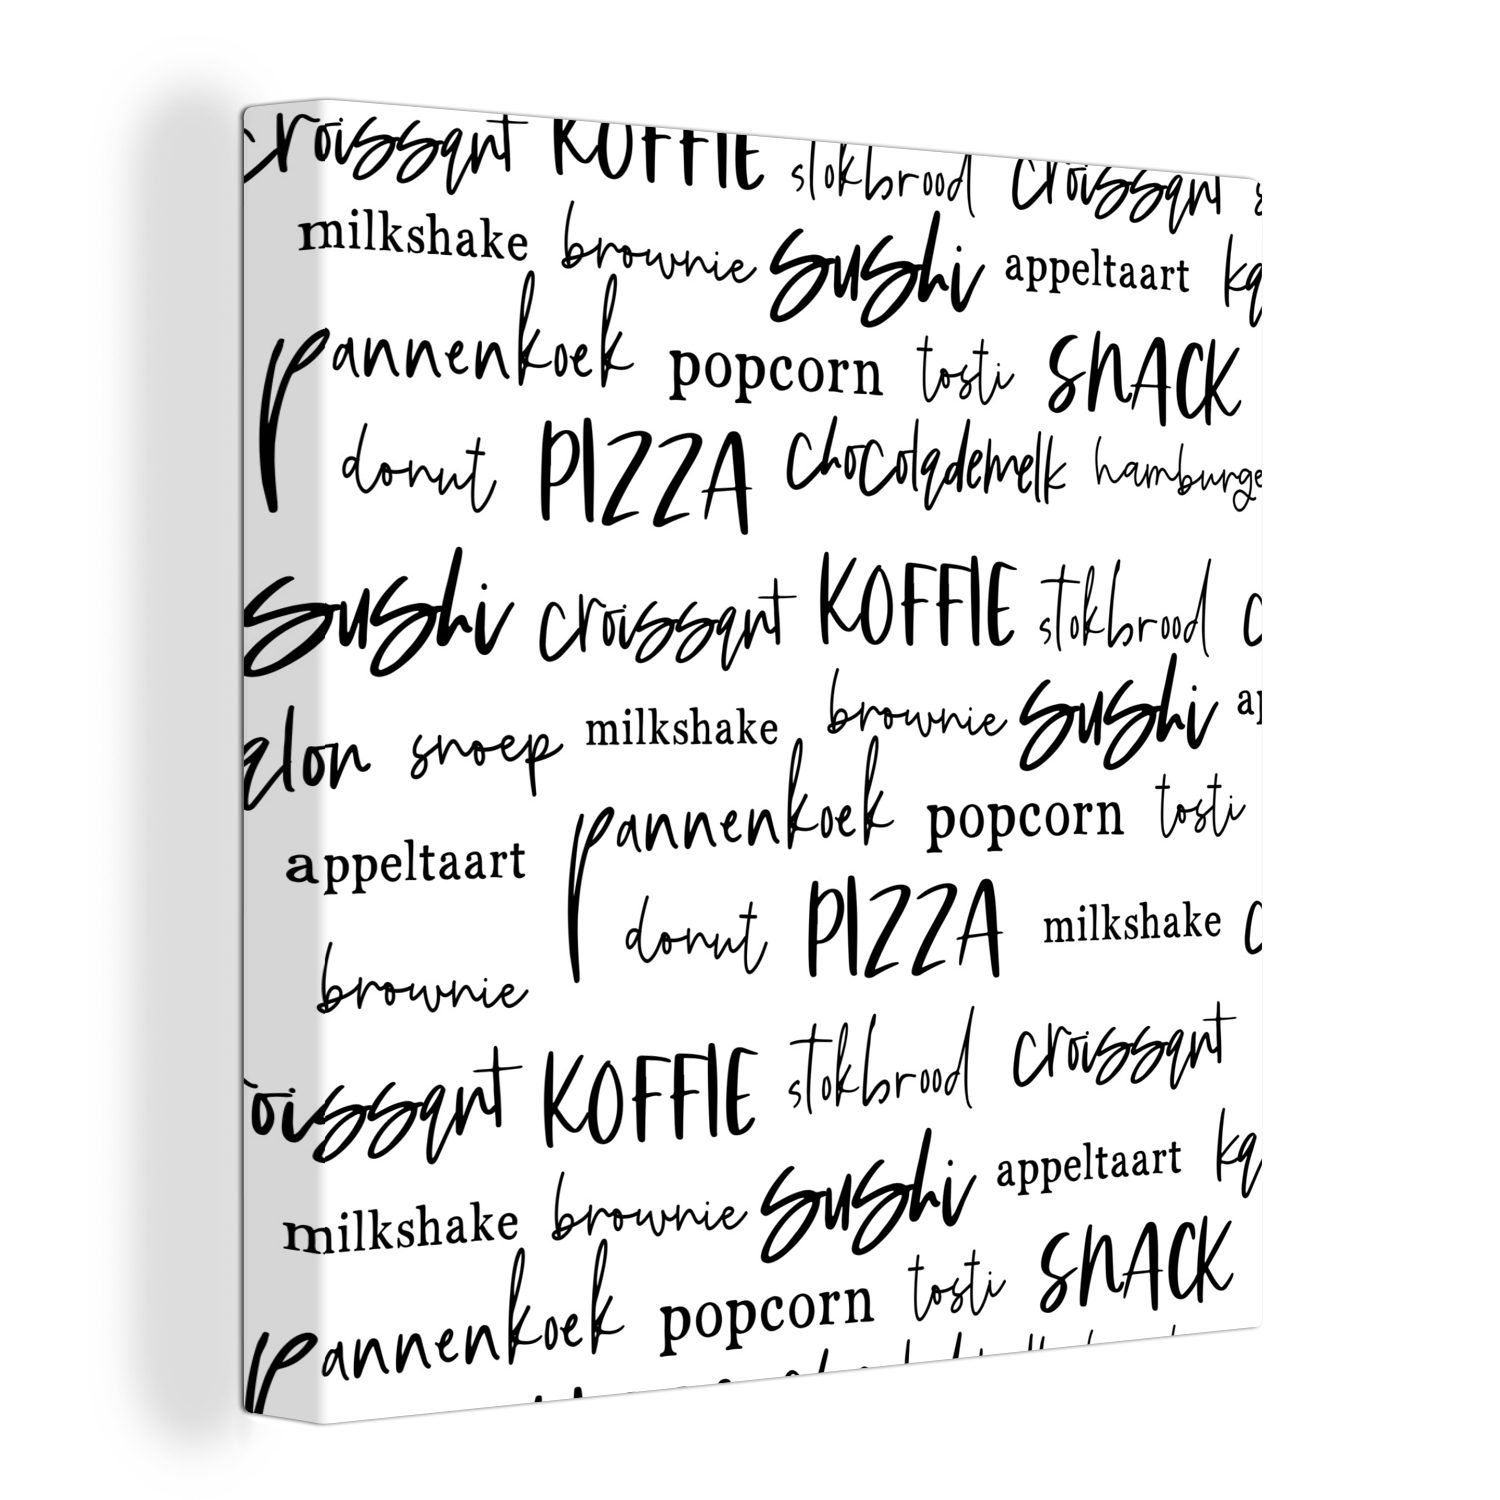 croissant KOFFIE stokbrood croissant
milkshake brownie sushi appeltaart ka
pannenkoek popcorn tosti SNACK
donut PIZZA chocolademelk hamburge
sushi croissant KOFFIE stokbrood c
alon snoep milkshake brownie sushi ap
appeltaart pannenkoek popcorn tosti
brownie donut PIZZA milkshake c
oissant KOFFIE stokbrood croissant
milkshake brownie sushi appeltaart ka
pannenkoek popcorn tosti SNACK